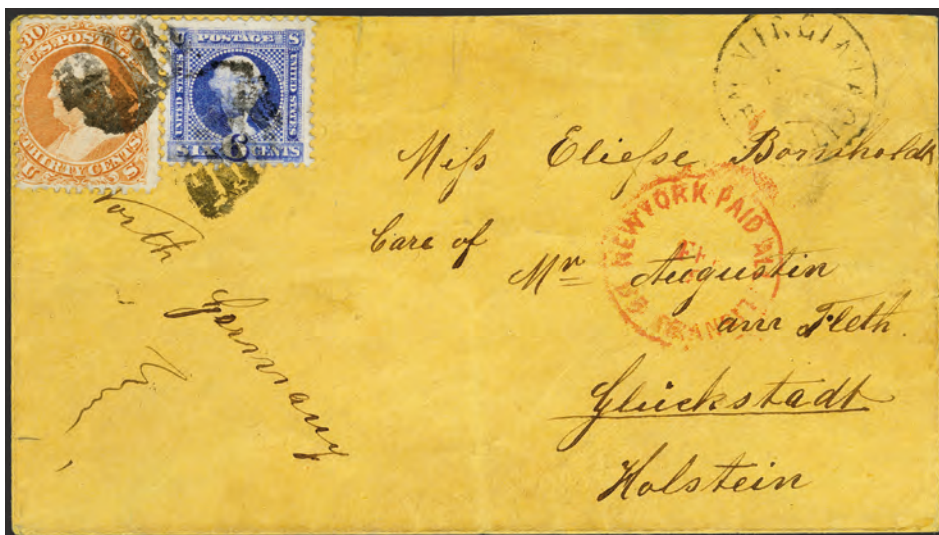 30 U.S. POSTAGE 30
THIRTY CENTS
U S
U POSTAGE S
UNITED STATES
UNITED STATES
SIX 6 CENTS
VIRGINIA
Miss Eliesse Bornholdt
NEW YORK PAID ALL
TRANSIT
Care of
Mr Augustin
am Fleth.
Glückstadt
Holstein
North
Germany